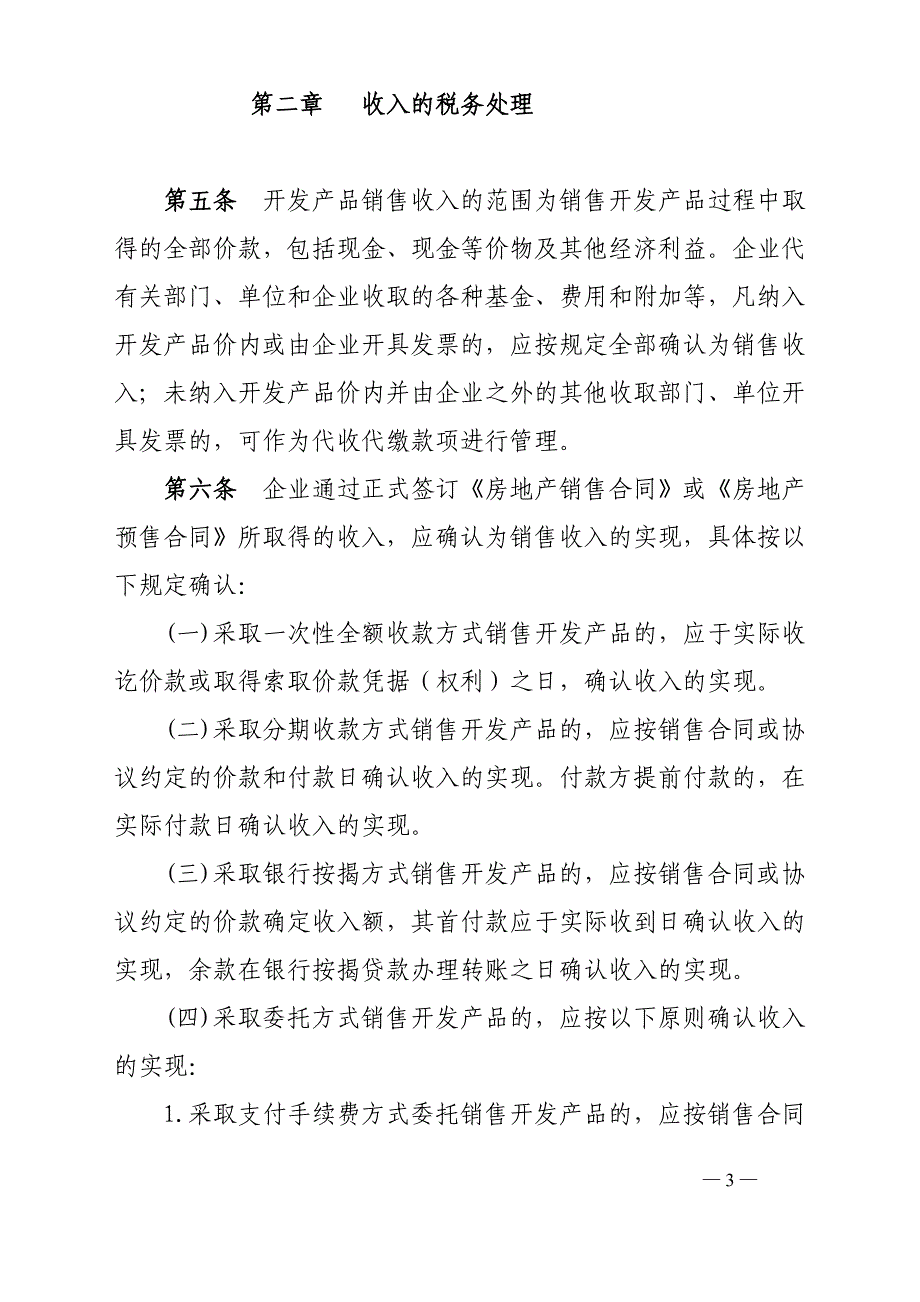 第二章　收入的税务处理
第五条　开发产品销售收入的范围为销售开发产品过程中取
得的全部价款，包括现金、现金等价物及其他经济利益。企业代
有关部门、单位和企业收取的各种基金、费用和附加等，凡纳入
开发产品价内或由企业开具发票的，应按规定全部确认为销售收
入；未纳入开发产品价内并由企业之外的其他收取部门、单位开
具发票的，可作为代收代缴款项进行管理。
第六条　企业通过正式签订《房地产销售合同》或《房地产
预售合同》所取得的收入，应确认为销售收入的实现，具体按以
下规定确认：
(一)采取一次性全额收款方式销售开发产品的，应于实际收
讫价款或取得索取价款凭据（权利）之日，确认收入的实现。
(二)采取分期收款方式销售开发产品的，应按销售合同或协
议约定的价款和付款日确认收入的实现。付款方提前付款的，在
实际付款日确认收入的实现。
(三)采取银行按揭方式销售开发产品的，应按销售合同或协
议约定的价款确定收入额，其首付款应于实际收到日确认收入的
实现，余款在银行按揭贷款办理转账之日确认收入的实现。
(四)采取委托方式销售开发产品的，应按以下原则确认收入
的实现：
1.采取支付手续费方式委托销售开发产品的，应按销售合同
— 3 —